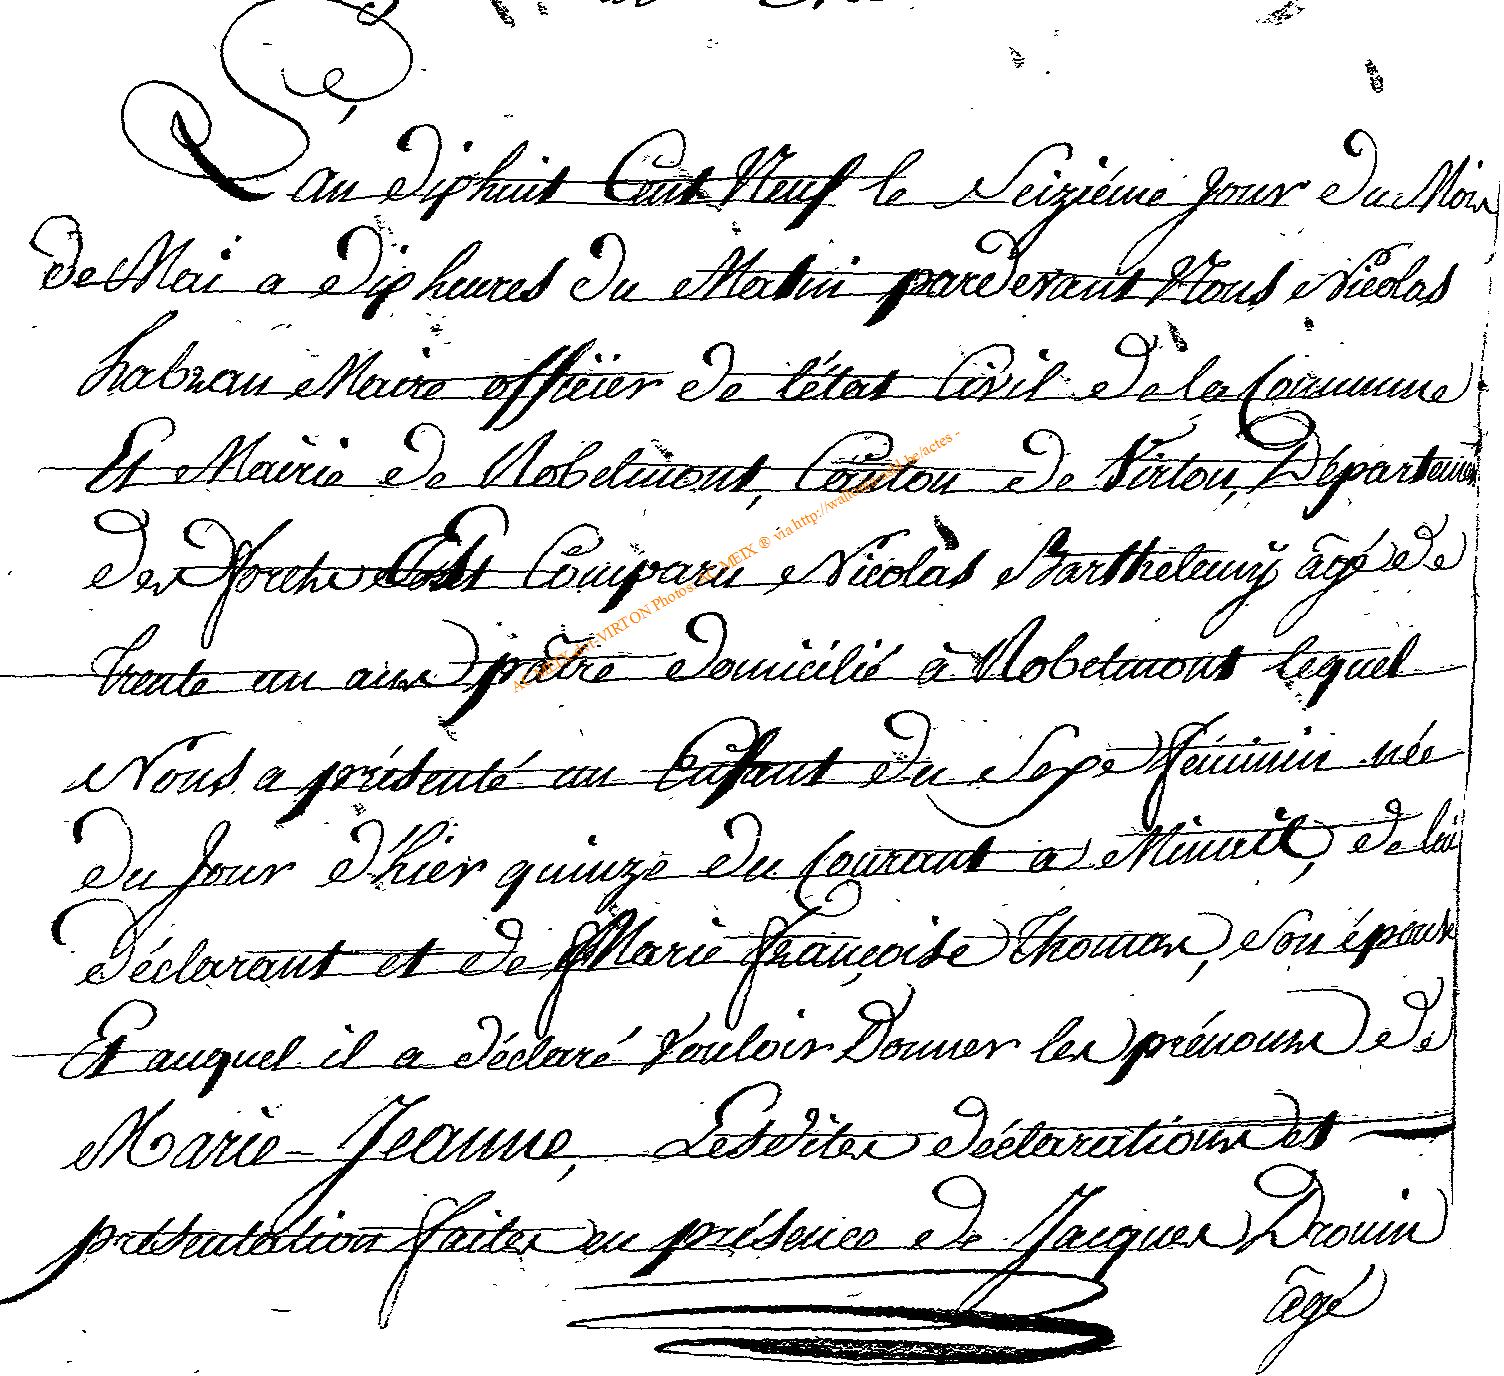 L'an dixhuit Cent Neuf le Seiziéme Jour du Mois
de Mai a dix heures du Matin pardevant Nous Nicolas
habran Maire officier de l'état Civil de la Commune
Et Mairie de Robelmont, Canton de Virton, Département
des forets Est Comparu Nicolas Barthelemÿ âgé de
trente un ans pâtre domicilié à Robelmont lequel
Nous a présenté un Enfant du Sexe féminin née
du Jour d'hier quinze du Courant a Minuit, de lui
déclarant et de Marie françoise Thomas, son épouse
Et auquel il a déclaré vouloir Donner les prénoms de
Marie-Jeanne, Lesdites déclarations et
présentation faites en présence de Jacques Drouin
âgé